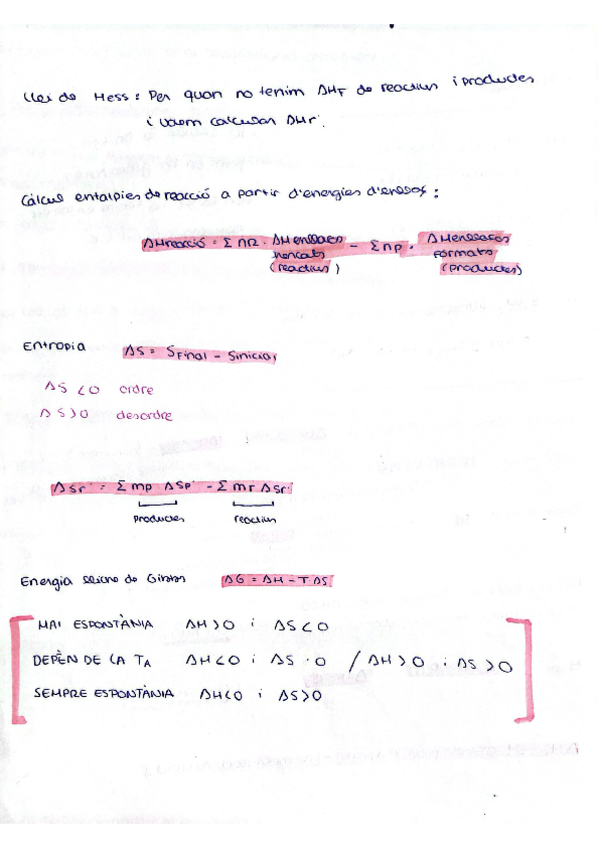 Llei de Hess: Per quan no tenim ΔHf de reactius i productes
i volem calcular ΔHr°.
Càlcul entalpies de reacció a partir d'energies d'enllaç:
ΔHreacció = Σ nR · ΔH enllaços trencats (reactius) - Σ np · ΔH enllaços formats (productes)
Entropia ΔS = Sfinal - Sinicial
ΔS < 0 ordre
ΔS > 0 desordre
ΔSr° = Σ mp ΔSp° - Σ mr ΔSr°
productes reactius
Energia lliure de Gibbs ΔG = ΔH - T ΔS
MAI ESPONTÀNIA ΔH > 0 i ΔS < 0
DEPÈN DE LA TA ΔH < 0 i ΔS · 0 / ΔH > 0 i ΔS > 0
SEMPRE ESPONTÀNIA ΔH < 0 i ΔS > 0